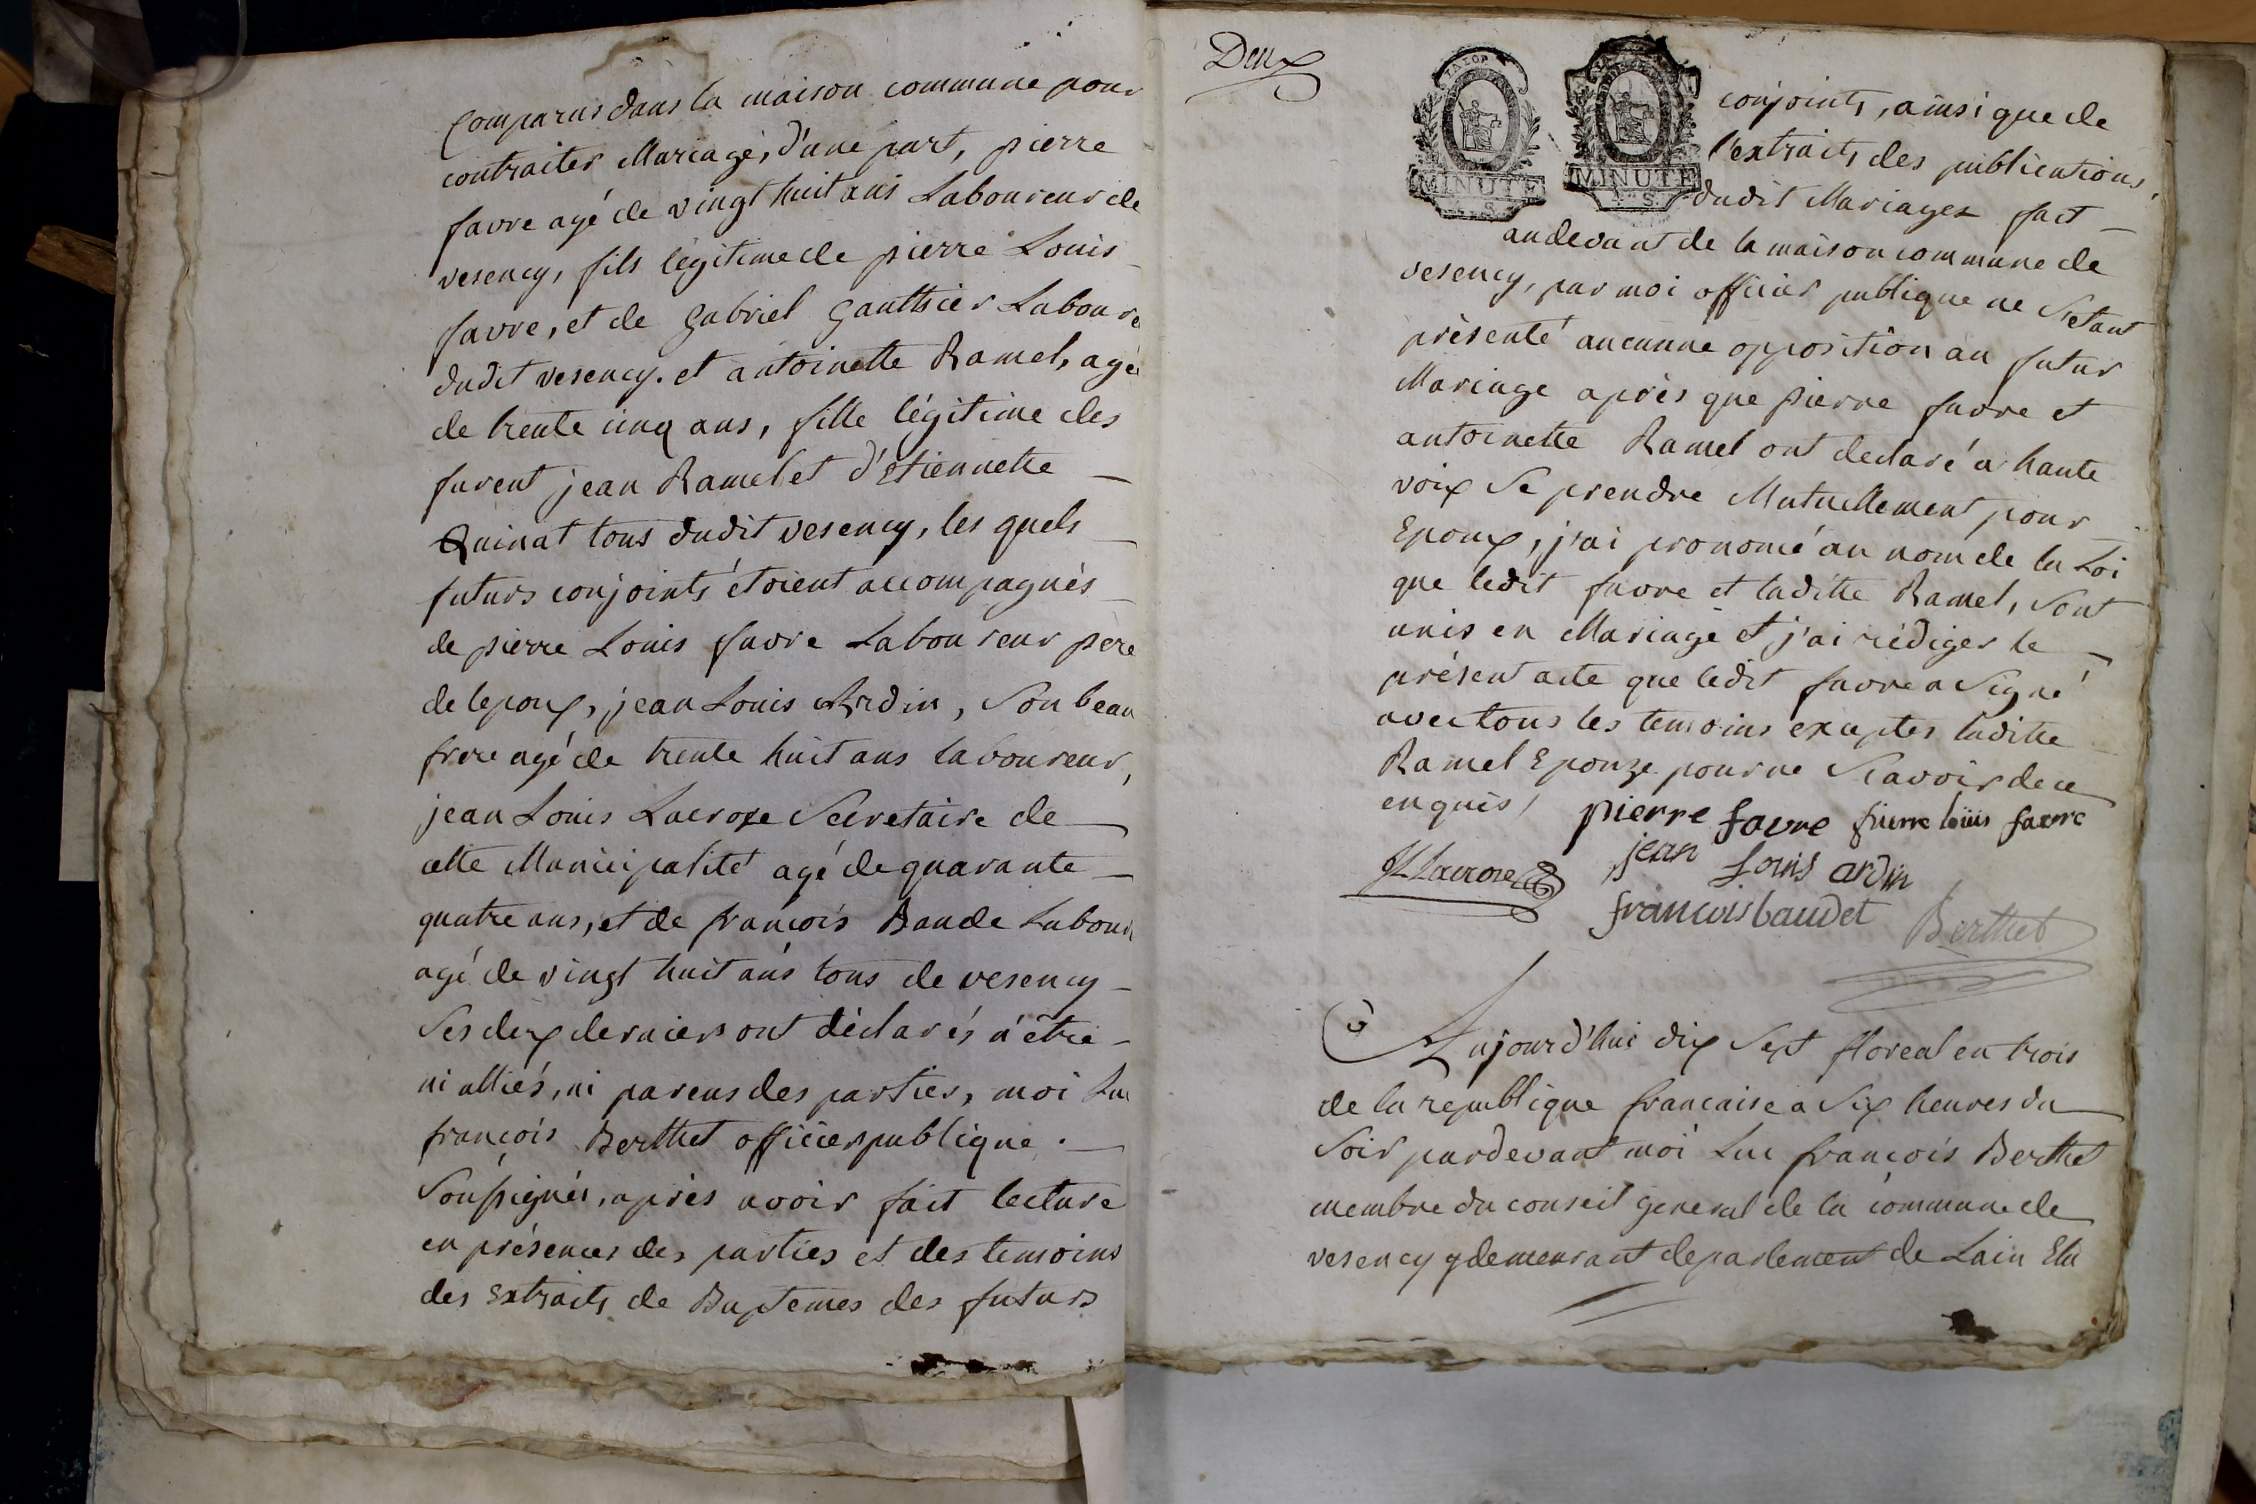 Comparus dans la maison commune pour
contraiter Mariage, d'une part, pierre
favre agé de vingt huit ans Laboureur de
vesency, fils légitime de pierre Louis
favre, et de gabriel gauthier Laboure
dudit vesency. et antoinette Ramel, agé
de trente cinq ans, fille légitime des
furent jean Ramel et d'Etiennette
Quinat tous dudit vesency, les quels
futurs conjoints étoient accompagnés
de pierre Louis favre Laboureur père
de lepoux, jean Louis Ardin, Son beau
frere agé de trente huit ans laboureur,
jean Louis Lacroze Secretaire de
cette Municipalité agé de quarante
quatre ans, et de françois Baude Labour
agé de vingt huit ans tous de vesency
Ses deux derniers ont déclarés n'être
ni alliés, ni parens des parties, moi Luc
françois Berthet officier publique.
Soussignés, après avoir fait lecture
en présences des parties et des temoins
des Extraits de Baptemes des futurs
Deux
MINUTE
MINUTE
conjoints, ainsi que de
l'extraits des publications,
dudit Mariages fait
audevant de la maison commune de
vesency, par moi officier publique ne S'etant
présenté aucunne opposition au futur
Mariage après que pierre favre et
antoinette Ramel ont declaré a haute
voix Se prendre Mutuellement pour
Epoux, j'ai prononcé au nom de la Loi
que ledit favre et laditte Ramel, Sont
unis en Mariage et j'ai rédiger le
présent acte que ledit favre a Signé
avec tous les temoins exceptes laditte
Ramel Epouze pour ne Scavoir de ce
enquis, pierre favre pierre loüis favre
JLLacroze jean Louis ardin
francois baudet Berthet
Aujourd'hui dix Sept floreal en trois
de la republique francaise a Six heures du
Soir pardevant moi Luc françois Berthet
membre du conseil general de la commune de
vesency y demeurant departement de Lain Elu